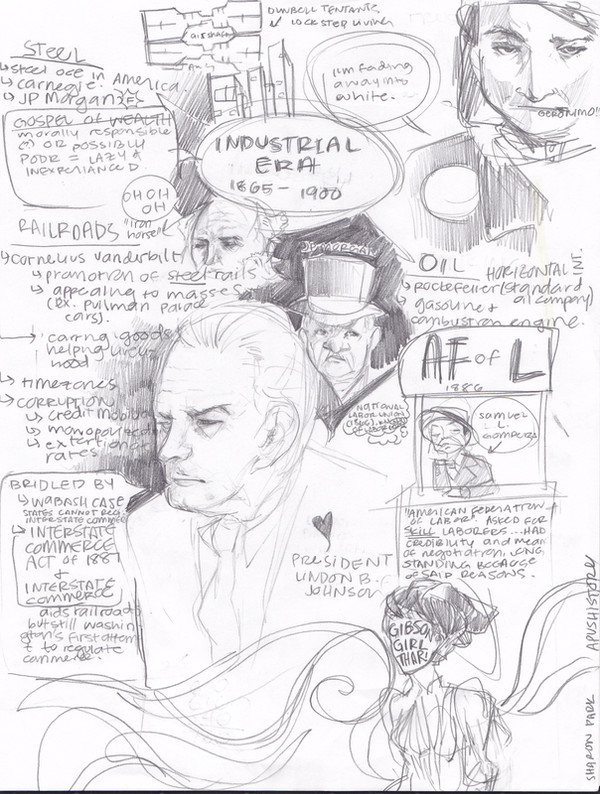 DUMBELL TENTANTS
LOCK STEP LIVING
airshaft
I'm fading
away into
white.
GERONIMO!!
STEEL
steel use in America
Carnegie.
JP Morgan
GOSPEL OF WEALTH
morally responsible
(?) OR POSSIBLY
POOR = LAZY &
INEXPERIANCED.
INDUSTRIAL
ERA
1865 - 1900
OH OH
OH
"iron
horse"
RAILROADS
Cornelius Vanderbilt
promotion of steel rails
appealing to masses
(ex. Pullman palace
cars).
caring goods
helping
hood
timezones
CORRUPTION
credit mobilier
monopolized
extortion
rates
JP MORGAN
OIL HORIZONTAL INT.
Rockefeller (standard
oil company)
gasoline &
combustion engine.
AF of L
1886
SAMUEL
L.
GOMPERS
NATIONAL
LABOR UNION
"AMERICAN FEDERATION
OF LABOR". ASKED FOR
SKILL LABORERS... HAD
CREDIBILITY and mean
of negotiation, LONG
STANDING BECAUSE
of SAID REASONS.
BRIDLED BY
WABASH CASE
STATES CANNOT REG.
INTERSTATE COMMERCE
INTERSTATE
COMMERCE
ACT OF 1887
&
INTERSTATE
COMMERCE
aids railroads
but still washin
gton's first attem
t to regulate
commerce.
PRESIDENT
LINDON B.
JOHNSON
GIBSON
GIRL
THAR!
SHARON PARK APUSHISTORY